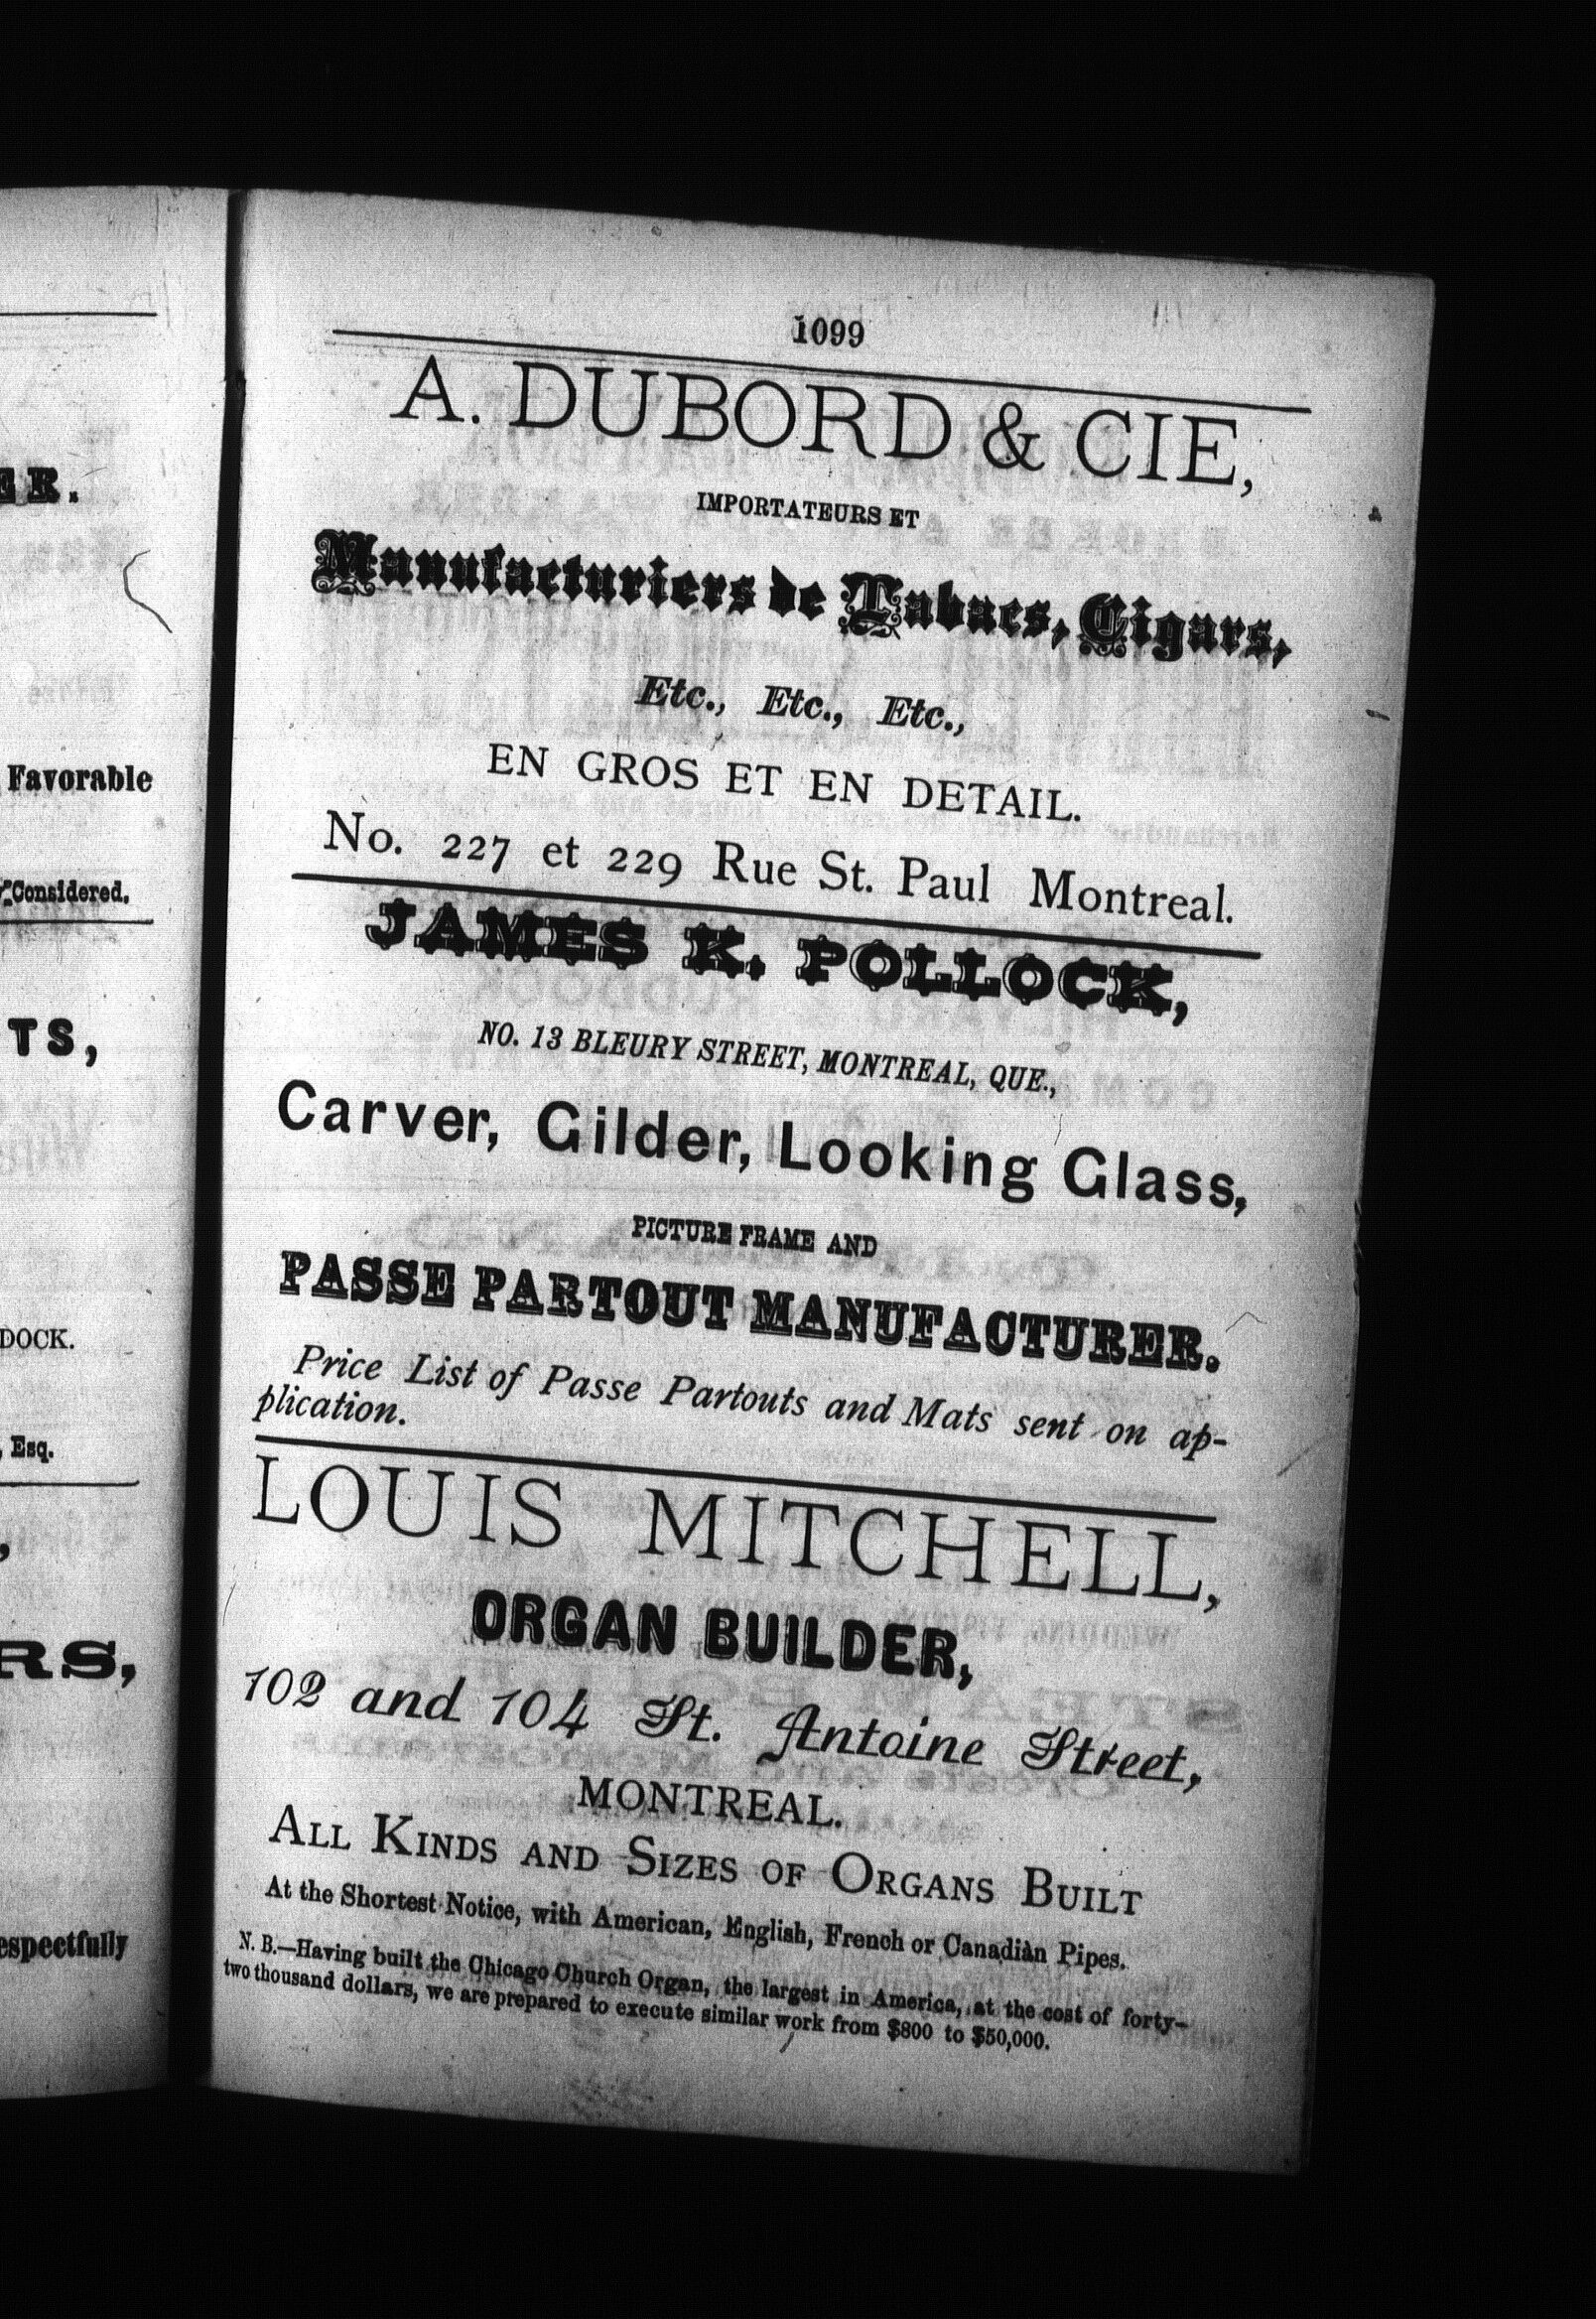 ER.
Favorable
Considered.
TS,
DOCK.
, Esq.
,
RS,
espectfully
1099
A. DUBORD & CIE,
IMPORTATEURS ET
Manufacturiers de Tabacs, Cigars,
Etc., Etc., Etc.,
EN GROS ET EN DETAIL.
No. 227 et 229 Rue St. Paul Montreal.
JAMES K. POLLOCK,
NO. 13 BLEURY STREET, MONTREAL, QUE.,
Carver, Gilder, Looking Glass,
PICTURE FRAME AND
PASSE PARTOUT MANUFACTURER.
Price List of Passe Partouts and Mats sent on ap-
plication.
LOUIS MITCHELL,
ORGAN BUILDER,
102 and 104 St. Antoine Street,
MONTREAL.
ALL KINDS AND SIZES OF ORGANS BUILT
At the Shortest Notice, with American, English, French or Canadian Pipes.
N. B.—Having built the Chicago Church Organ, the largest in America, at the cost of forty-
two thousand dollars, we are prepared to execute similar work from $800 to $50,000.